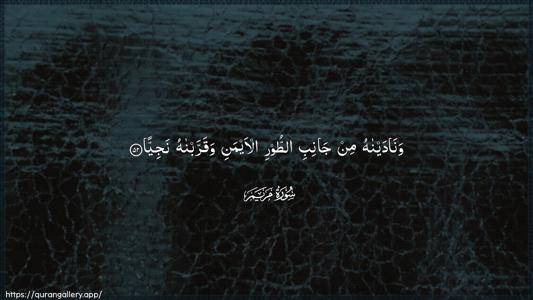 وَنَادَيْنٰهُ مِنْ جَانِبِ الطُّوْرِ الْاَيْمَنِ وَقَرَّبْنٰهُ نَجِيًّا ۝٥٢
سُوْرَةُ مَرْيَمَ
https://qurangallery.app/